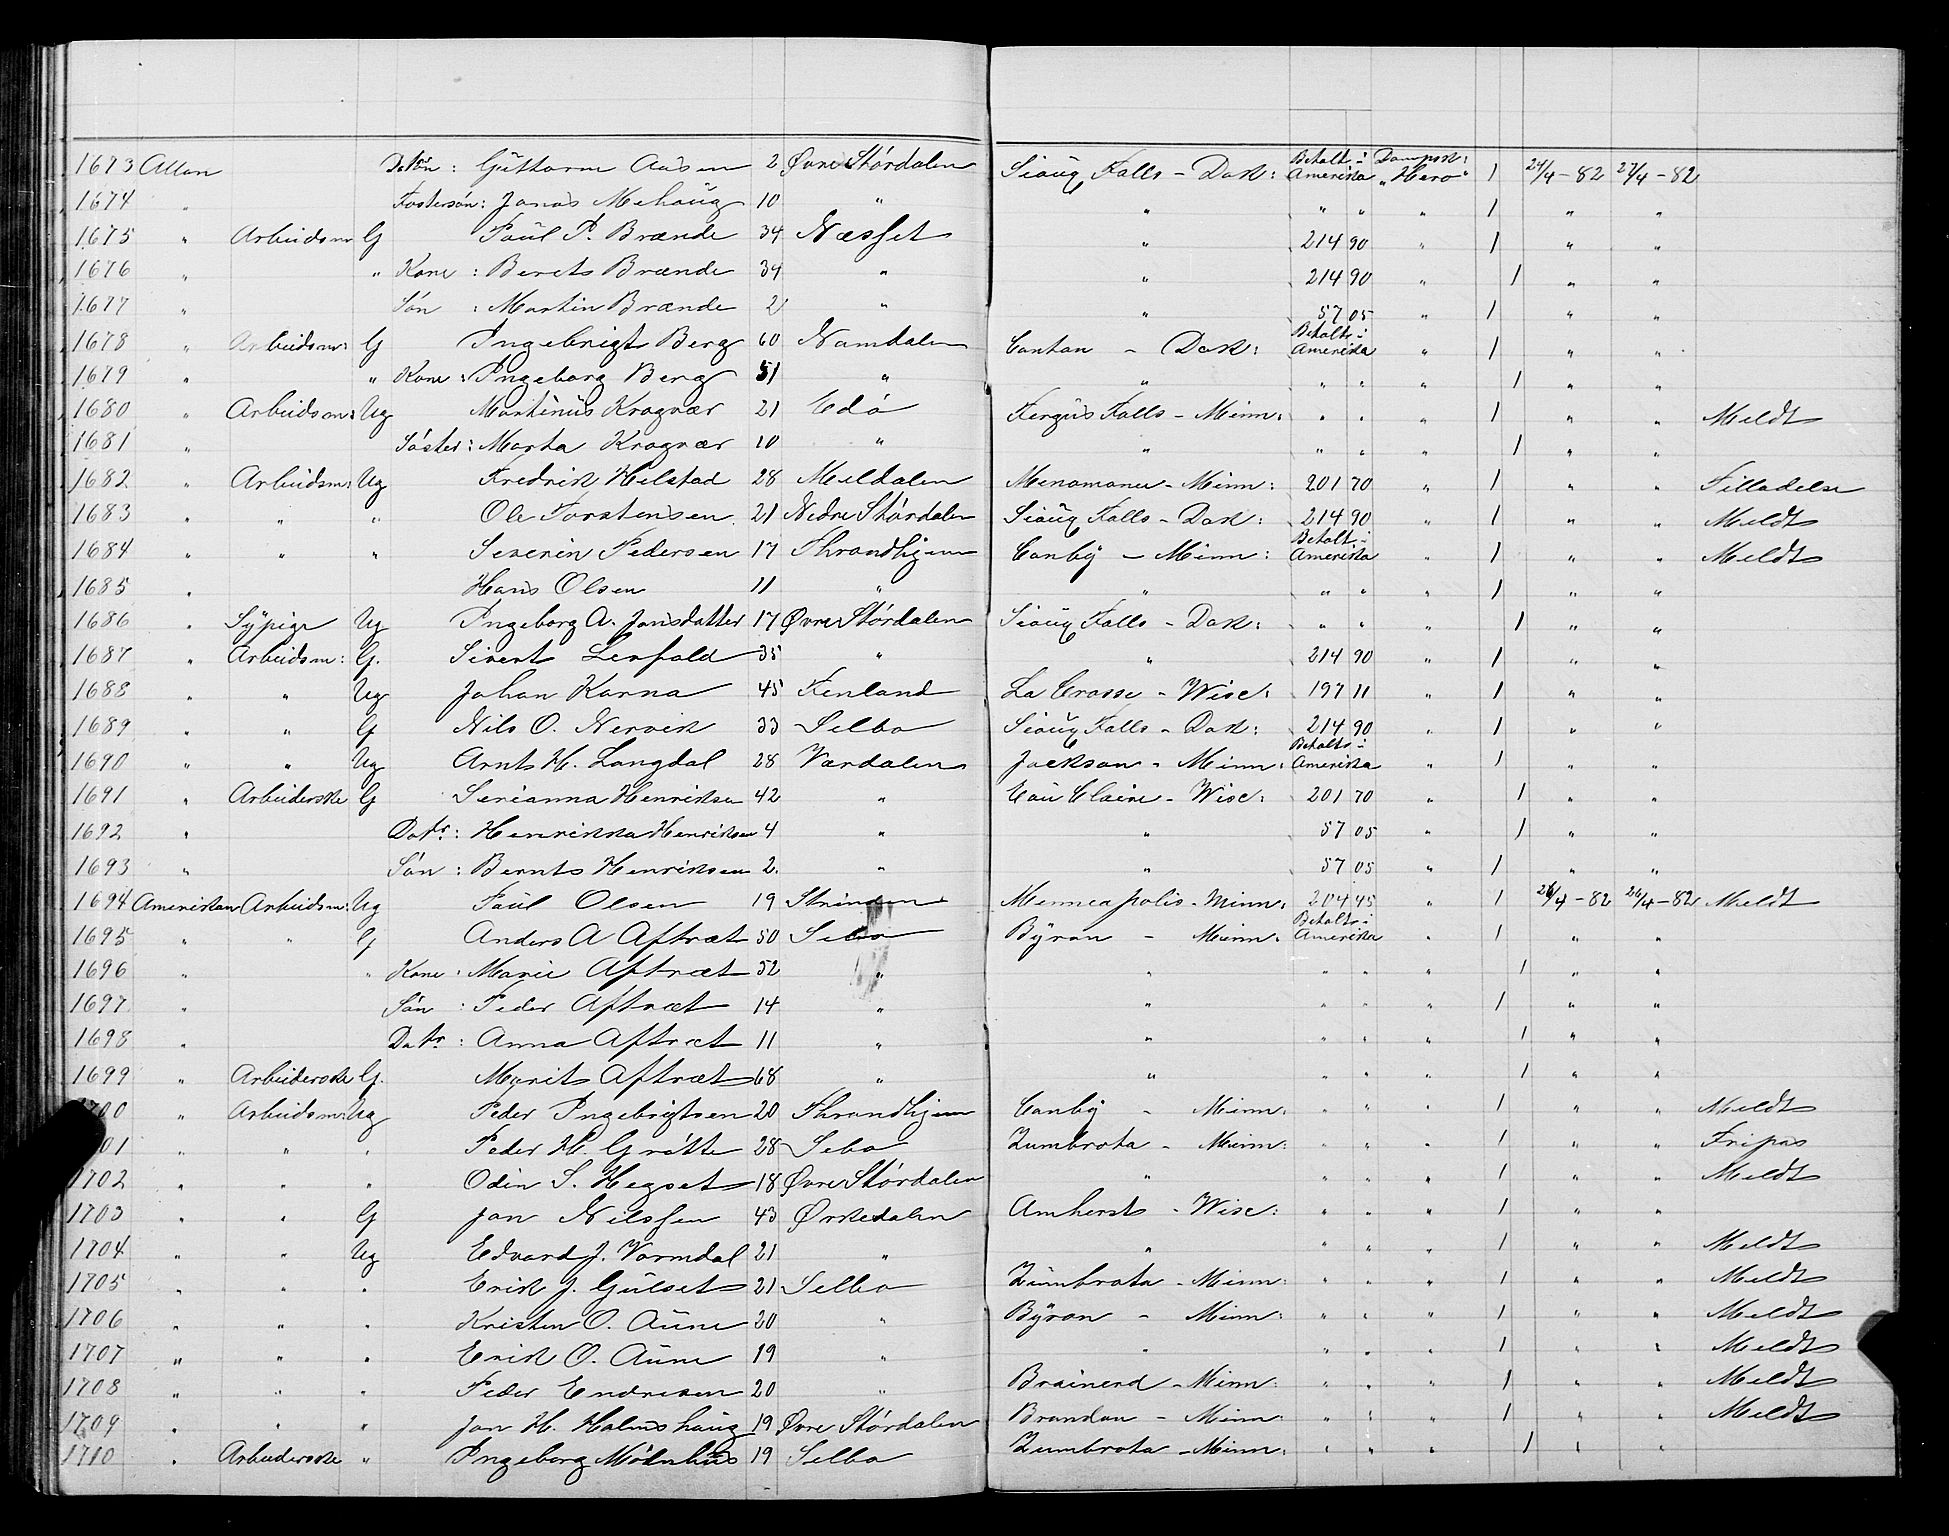 1673 Allan Søn : Guttorm Aasen 2 Øvre Stördalen Sioux Falls - Dak: Betalt i Amerika Dampsk: "Hero" 1 24/4 - 82 27/4 - 82
1674 " Fosterson: Jonas Mehaug 10 " " " " " 1 " "
1675 " Arbeidsm G Paul P. Brænde 34 Næsset " 214 90 " 1 " "
1676 " " Kone : Berets Brænde 34 " " 214 90 " 1 " "
1677 " Søn : Martin Brænde 2 " " 57 05 " 1 " "
1678 " Arbeidsm: G Ingebrigt Berg 60 Namdalen Canton - Dak: Betalt i Amerika " 1 " "
1679 " " Kone : Ingeborg Berg 51 " " " " " 1 " "
1680 " Arbeidsm: Ug Martinus Kragvær 21 Edö Fergus Falls - Minn: " " " 1 " " Meldt
1681 " Söster : Marta Kragvær 10 " " " " " 1 " "
1682 " Arbeidsm: Ug Fredrik Helstad 28 Meldalen Menomonee - Minn: 201 70 " 1 " " Filladelse
1683 " " " Ole Torstensen 21 Nedre Stördalen Sioux Falls - Dak: 214 90 " 1 " " Meldt
1684 " " " Severin Pedersen 17 Throndhjem Canby - Minn: Betalt i Amerika " 1 " " Meldt
1685 " Hans Olsen 11 " " " " " 1 " "
1686 " Sypige Ug Ingeborg A. Jonsdatter 17 Øvre Stördalen Sioux Falls - Dak: " " " 1 " "
1687 " Arbeidsm: G. Sivert Lerfald 35 " " 214 90 " 1 " "
1688 " " Ug Johan Karna 45 Finland La Crosse - Wisc: 197 11 " 1 " "
1689 " " G Nils O. Nervik 33 Selbo Sioux Falls - Dak: 214 90 " 1 " "
1690 " " Ug Arnt H. Langdal 28 Værdalen Jackson - Minn: Betalt i Amerika " 1 " "
1691 " Arbeiderske G Serianna Henriksen 42 " Eau Claire - Wisc: 201 70 " 1 " "
1692 " Datr: Henrikka Henriksen 4 " " 57 05 " 1 " "
1693 " Søn : Bernt Henriksen 2 " " 57 05 " 1 " "
1694 Amerikan Arbeidsm: Ug Paul Olsen 19 Strinden Minneapolis - Minn: 204 45 " 1 26/4 - 82 26/4 - 82 Meldt
1695 " " G Anders A Aftræt 50 Selbo Byron - Minn: Betalt i Amerika " 1 " "
1696 " " Kone : Marie Aftræt 52 " " " " " 1 " "
1697 " Søn : Peder Aftræt 14 " " " " " 1 " "
1698 " Datr : Anna Aftræt 11 " " " " " 1 " "
1699 " Arbeiderske G. Marit Aftræt 68 " " " " " 1 " "
1700 " Arbeidsm: Ug Peder Ingebrigtsen 20 Throndhjem Canby - Minn: " " " 1 " " Meldt
01 " " " Peder H. Gråtte 28 Selbo Zumbrota - Minn: " " " 1 " " Fripas
1702 " " " Odin S. Hegset 18 Øvre Stördalen " " " " 1 " " Meldt
1703 " " G Jon Nilssen 43 Ørkedalen Amherst - Wisc: " " " 1 " "
1704 " " Ug Edvard J. Vormdal 21 " " " " " 1 " " Meldt
1705 " " " Erik J. Gulset 21 Selbo Zumbrota - Minn: " " " 1 " " Meldt
1706 " " " Kristen O. Aune 20 " Byron - Minn: " " " 1 " " Meldt
1707 " " " Erik O. Aune 19 " " " " " 1 " " Meldt
1708 " " " Peder Endresen 20 " Brainerd - Minn: " " " 1 " " Meldt
1709 " " " Jon H. Halmshaug 19 Øvre Stördalen Brandon - Minn: " " " 1 " " Meldt
1710 " Arbeiderske " Ingeborg Mölnhus 19 Selbo Zumbrota - Minn: " " " 1 " "